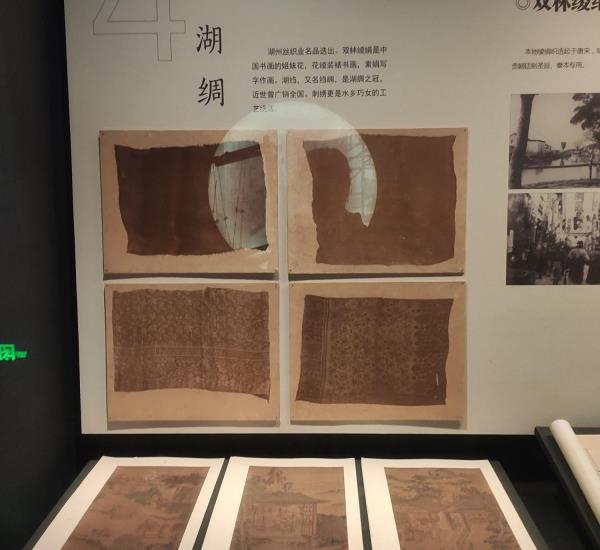 4
湖
绸
湖州丝织业名品迭出。双林绫绢是中
国书画的姐妹花，花绫装裱书画，素绢写
字作画。湖绉，又名绉绸，是湖绸之冠，
近世曾广销全国。刺绣更是水乡巧女的工
艺绝活。
双林绫绢
本地绫绢织造起于唐宋，